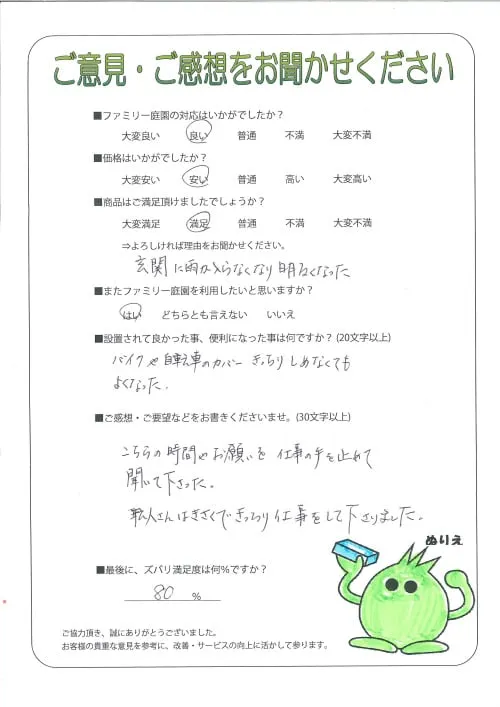 ご意見・ご感想をお聞かせください
■ファミリー庭園の対応はいかがでしたか？
大変良い 良い 普通 不満 大変不満
■価格はいかがでしたか？
大変安い 安い 普通 高い 大変高い
■商品はご満足頂けましたでしょうか？
大変満足 満足 普通 不満 大変不満
⇒よろしければ理由をお聞かせください。
玄関に雨が入らなくなり明るくなった
■またファミリー庭園を利用したいと思いますか？
はい どちらとも言えない いいえ
■設置されて良かった事、便利になった事は何ですか？(20文字以上)
バイクや自転車のカバー きっちりしめなくても
よくなった.
■ご感想・ご要望などをお書きくださいませ。(30文字以上)
こちらの時間やお願いを 仕事の手を止めて
聞いて下さった。
職人さんはきさくできっちり仕事をして下さりました.
ぬりえ
■最後に、ズバリ満足度は何%ですか？
80 %
ご協力頂き、誠にありがとうございました。
お客様の貴重な意見を参考に、改善・サービスの向上に活かして参ります。